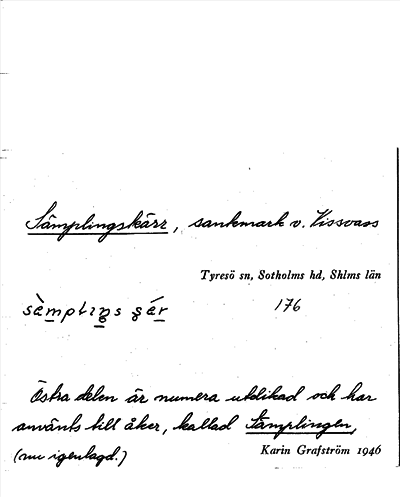 Sämplingskärr, sankmark v. Vissvass
Tyresö sn, Sotholms hd, Shlms län
176
Östra delen är numera utdikad och har
använts till åker, kallad Sämplingen,
(nu igenlagd.)
Karin Grafström 1946